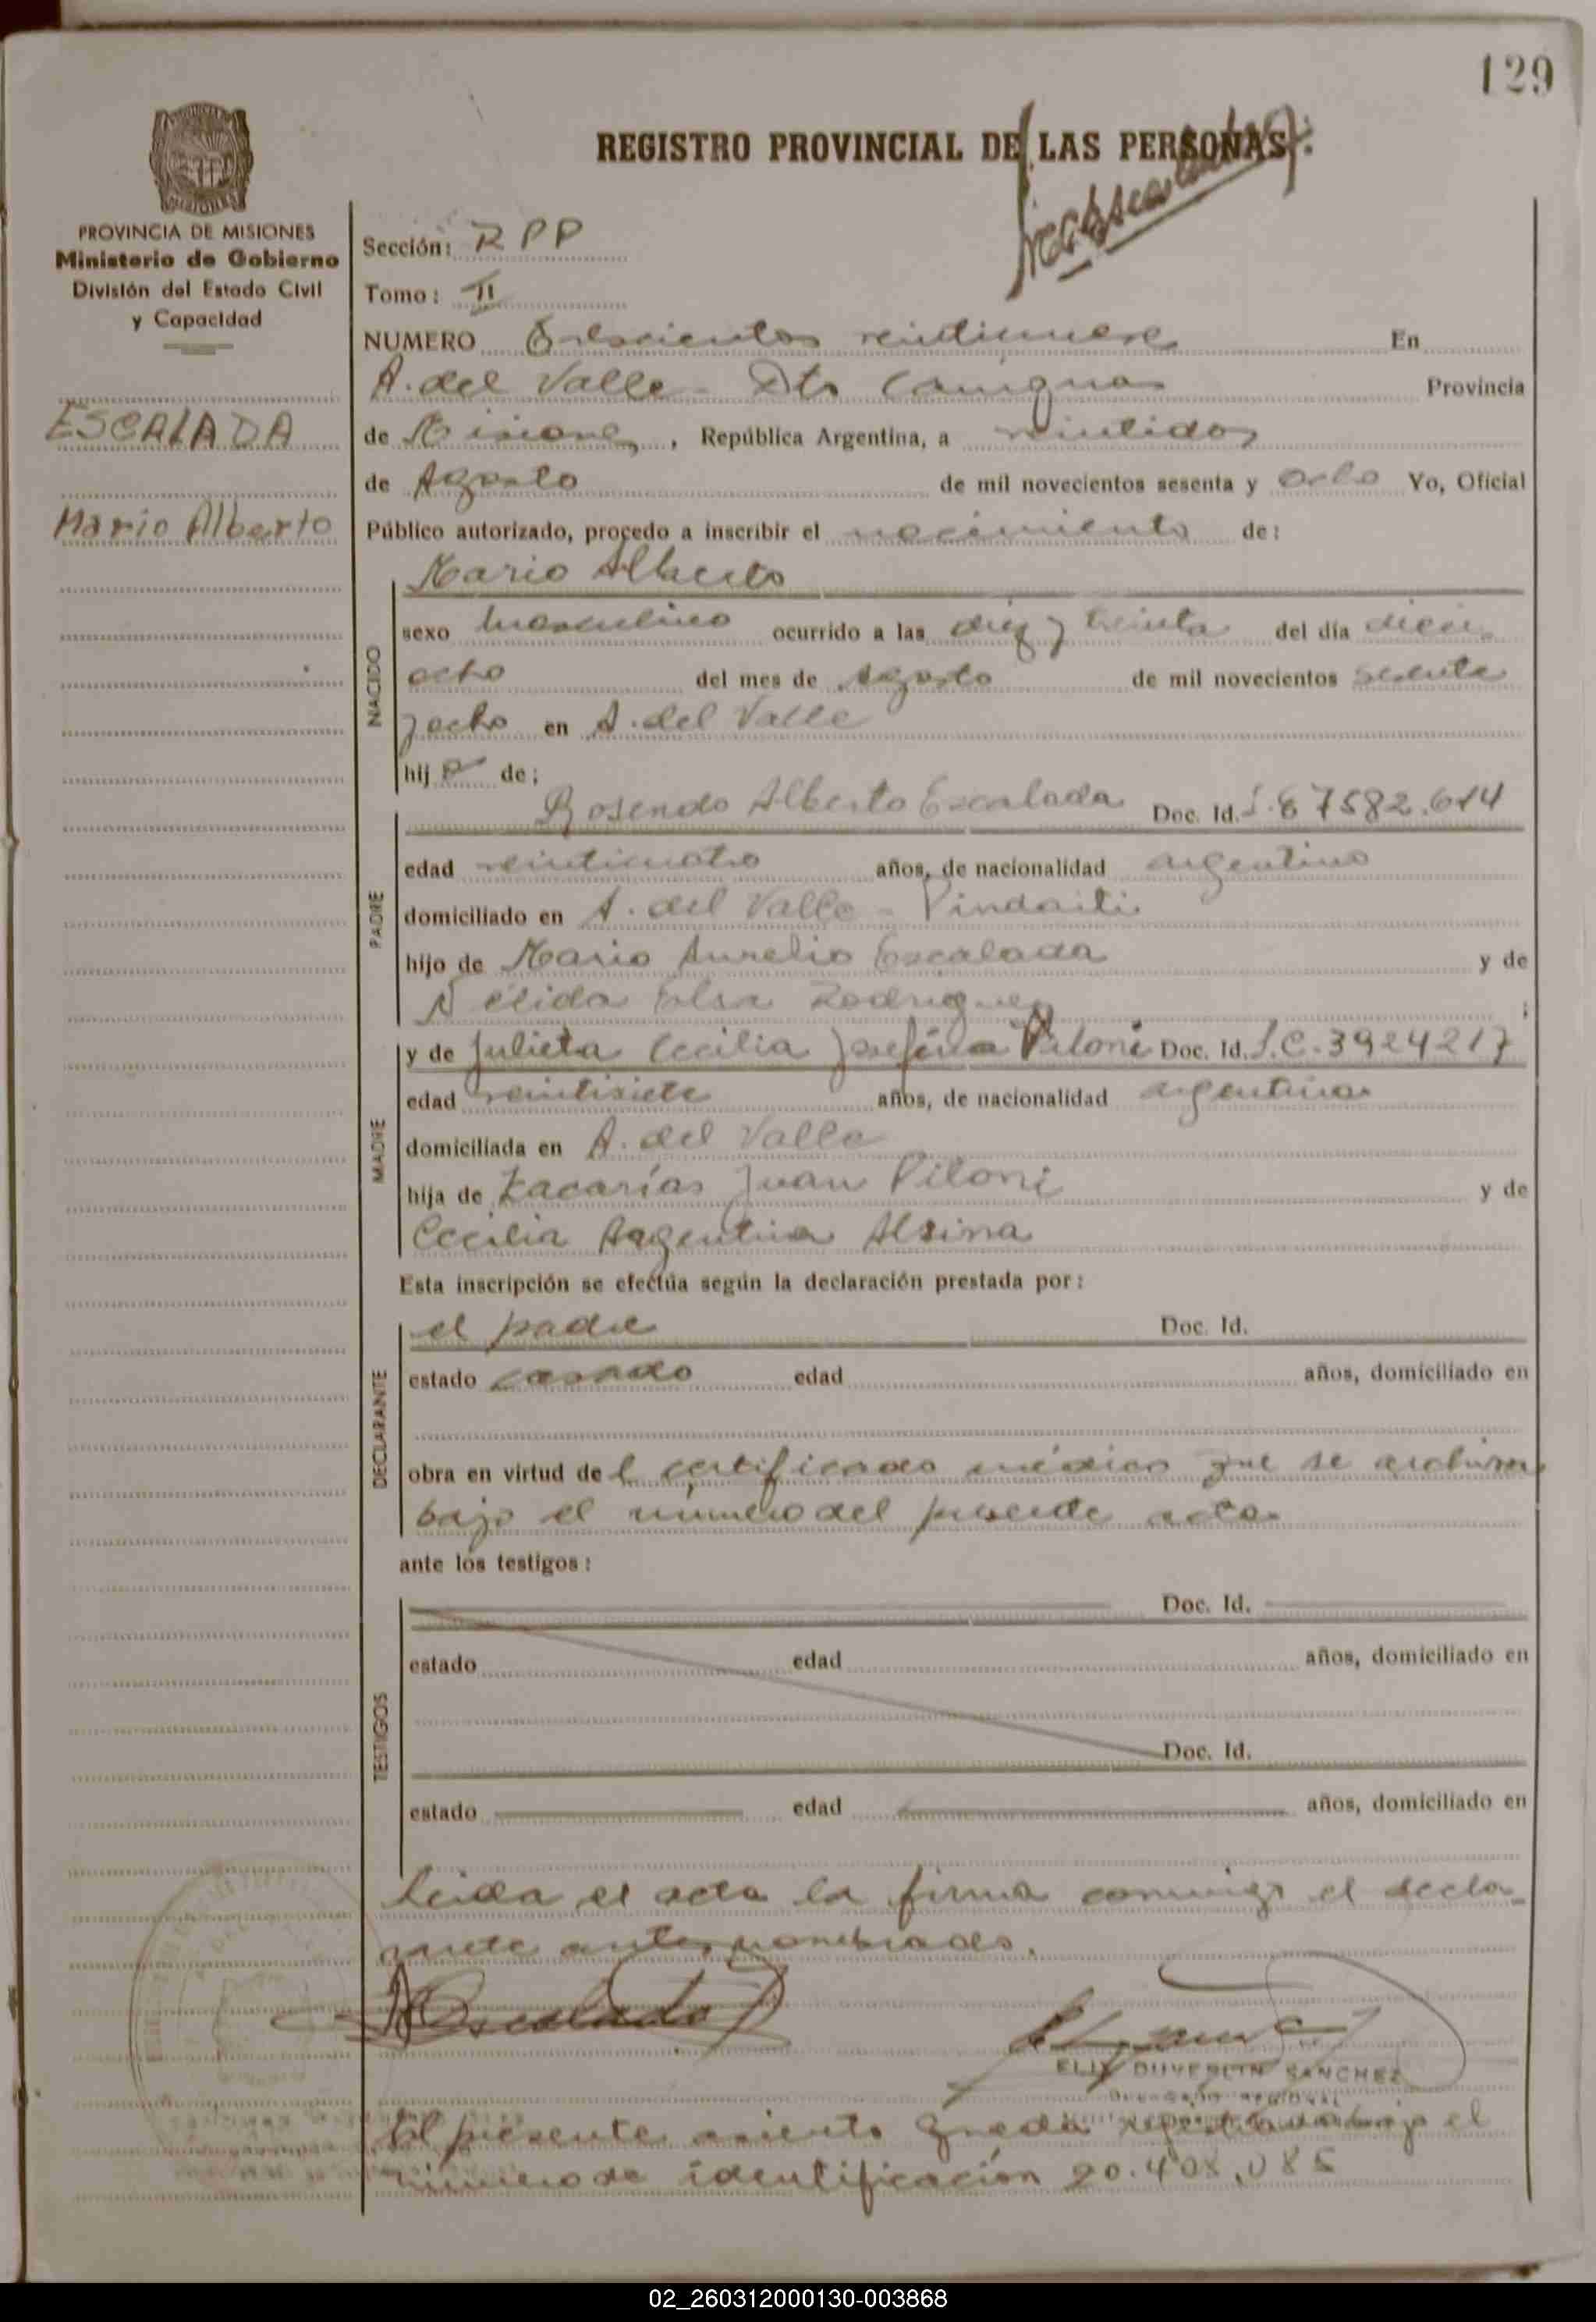 129
REGISTRO PROVINCIAL DE LAS PERSONAS
PROVINCIA DE MISIONES
Ministerio de Gobierno
División del Estado Civil
y Capacidad
ESCALADA
Mario Alberto
Sección: RPP
Tomo: II
NUMERO Trescientos veintinueve En
A. del Valle - Dto Cainguas Provincia
de Misiones, República Argentina, a veintidos
de Agosto de mil novecientos sesenta y ocho Yo, Oficial
Público autorizado, procedo a inscribir el nacimiento de:
Mario Alberto
NACIDO
sexo masculino ocurrido a las diez y treinta del día dieci-
ocho del mes de Agosto de mil novecientos sesenta
y ocho en A. del Valle
hijo de:
Rosendo Alberto Escalada Doc. Id. 7582.614
PADRE
edad veinticuatro años, de nacionalidad argentino
domiciliado en A. del Valle - Pindaiti
hijo de Mario Aurelio Escalada y de
Nélida Elsa Rodriguez ;
y de Julieta Cecilia Josefina Piloni Doc. Id. L.C. 3924217
MADRE
edad veintisiete años, de nacionalidad argentina
domiciliada en A. del Valle
hija de Zacarías Juan Piloni y de
Cecilia Argentina Alsina
Esta inscripción se efectúa según la declaración prestada por:
el padre Doc. Id.
DECLARANTE
estado casado edad años, domiciliado en
obra en virtud del certificado médico que se archiva
bajo el número del presente acta
ante los testigos:
TESTIGOS
Doc. Id.
estado edad años, domiciliado en
Doc. Id.
estado edad años, domiciliado en
Leida el acta la firma conmigo el decla-
rante antes nombrado.
ELIX DUVERLIN SANCHEZ
DELEGADO REGIONAL
El presente asiento queda registrado bajo el
número de identificación 20.408.085
02_260312000130-003868